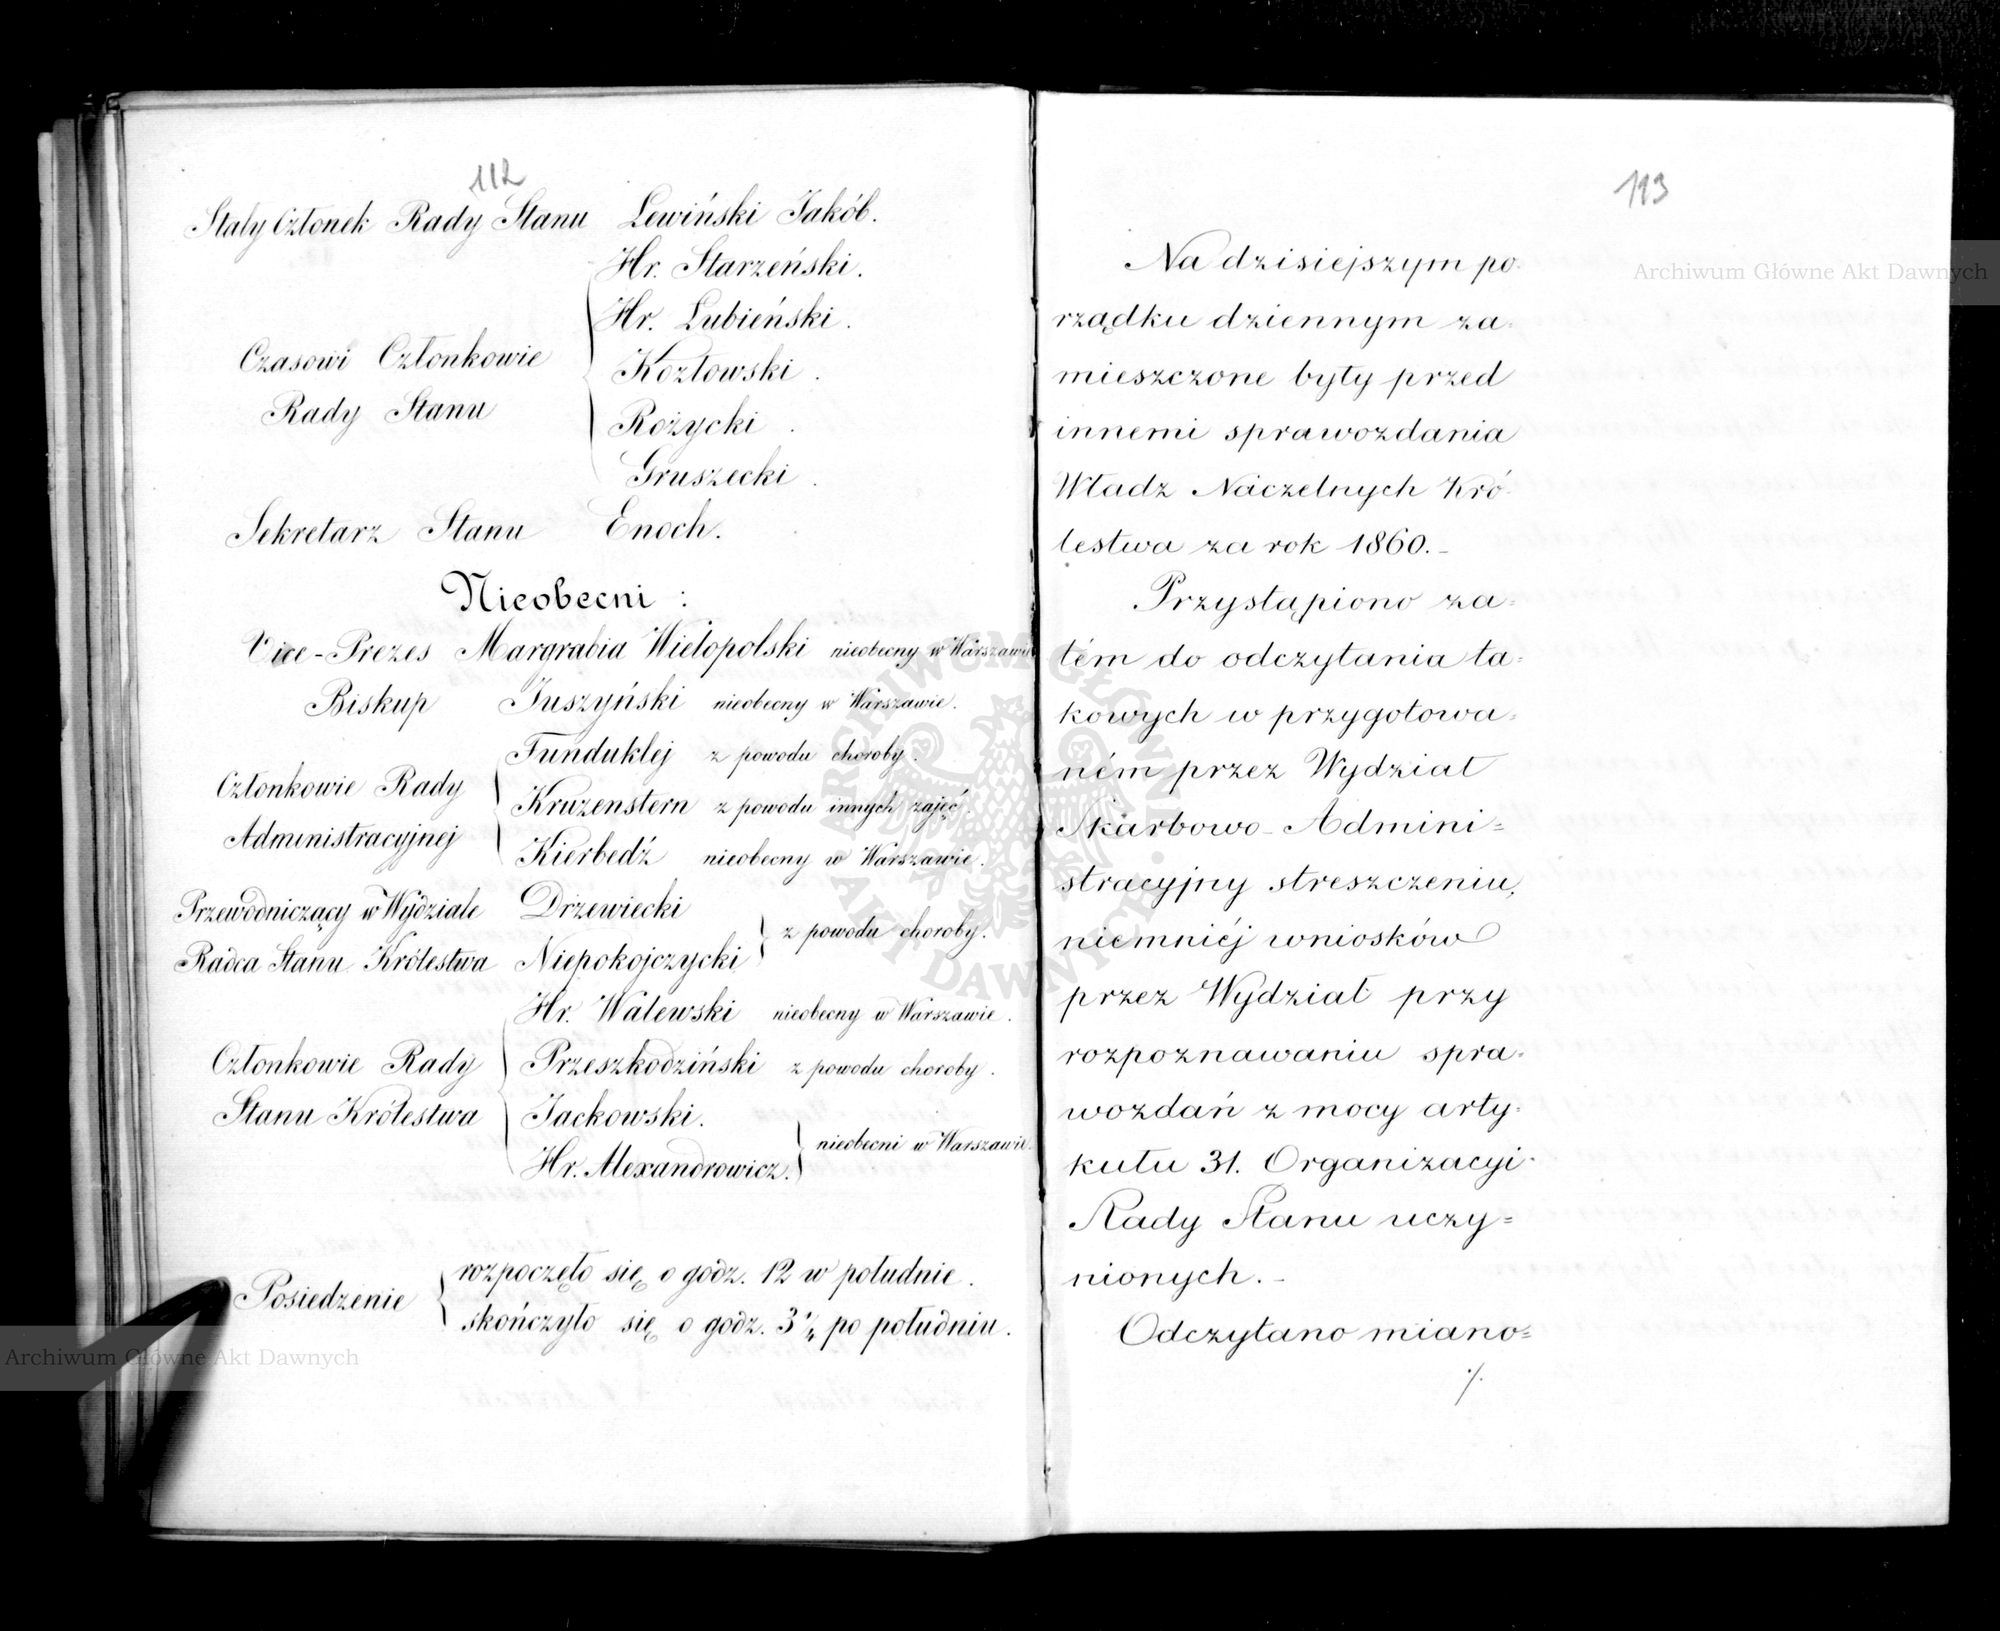 112
Stały Członek Rady Stanu Lewiński Jakób.
Hr. Starzeński.
Hr. Łubieński.
Czasowi Członkowie Kozłowski.
Rady Stanu Rożycki.
Gruszecki.
Sekretarz Stanu Enoch.
Nieobecni:
Vice-Prezes Margrabia Wielopolski nieobecny w Warszawie
Biskup Juszyński nieobecny w Warszawie.
Funduklej z powodu choroby.
Członkowie Rady Kruzenstern z powodu innych zajęć.
Administracyjnej Kierbedź nieobecny w Warszawie.
Przewodniczący w Wydziale Drzewiecki
z powodu choroby.
Radca Stanu Królestwa Niepokojczycki
Hr. Walewski nieobecny w Warszawie.
Członkowie Rady Przeszkodziński z powodu choroby.
Stanu Królestwa Jackowski.
nieobecni w Warszawie.
Hr. Alexandrowicz.
Posiedzenie rozpoczęło się o godz. 12 w południe.
skończyło się o godz. 3¼ po południu.
113
Na dzisiejszym po-
rządku dziennym za-
mieszczone były przed
innemi sprawozdania
Władz Naczelnych Kró-
lestwa za rok 1860.-
Przystąpiono za=
tém do odczytania ta=
kowych w przygotowa=
ném przez Wydział
Skarbowo-Admini=
stracyjny streszczeniu,
niemniéj wniosków
przez Wydział przy
rozpoznawaniu spra-
wozdań z mocy arty-
kułu 31. Organizacyi
Rady Stanu uczy=
nionych.-
Odczytano miano=
./.
Archiwum Główne Akt Dawnych
Archiwum Główne Akt Dawnych
ARCHIWUM GŁÓWNE AKT DAWNYCH